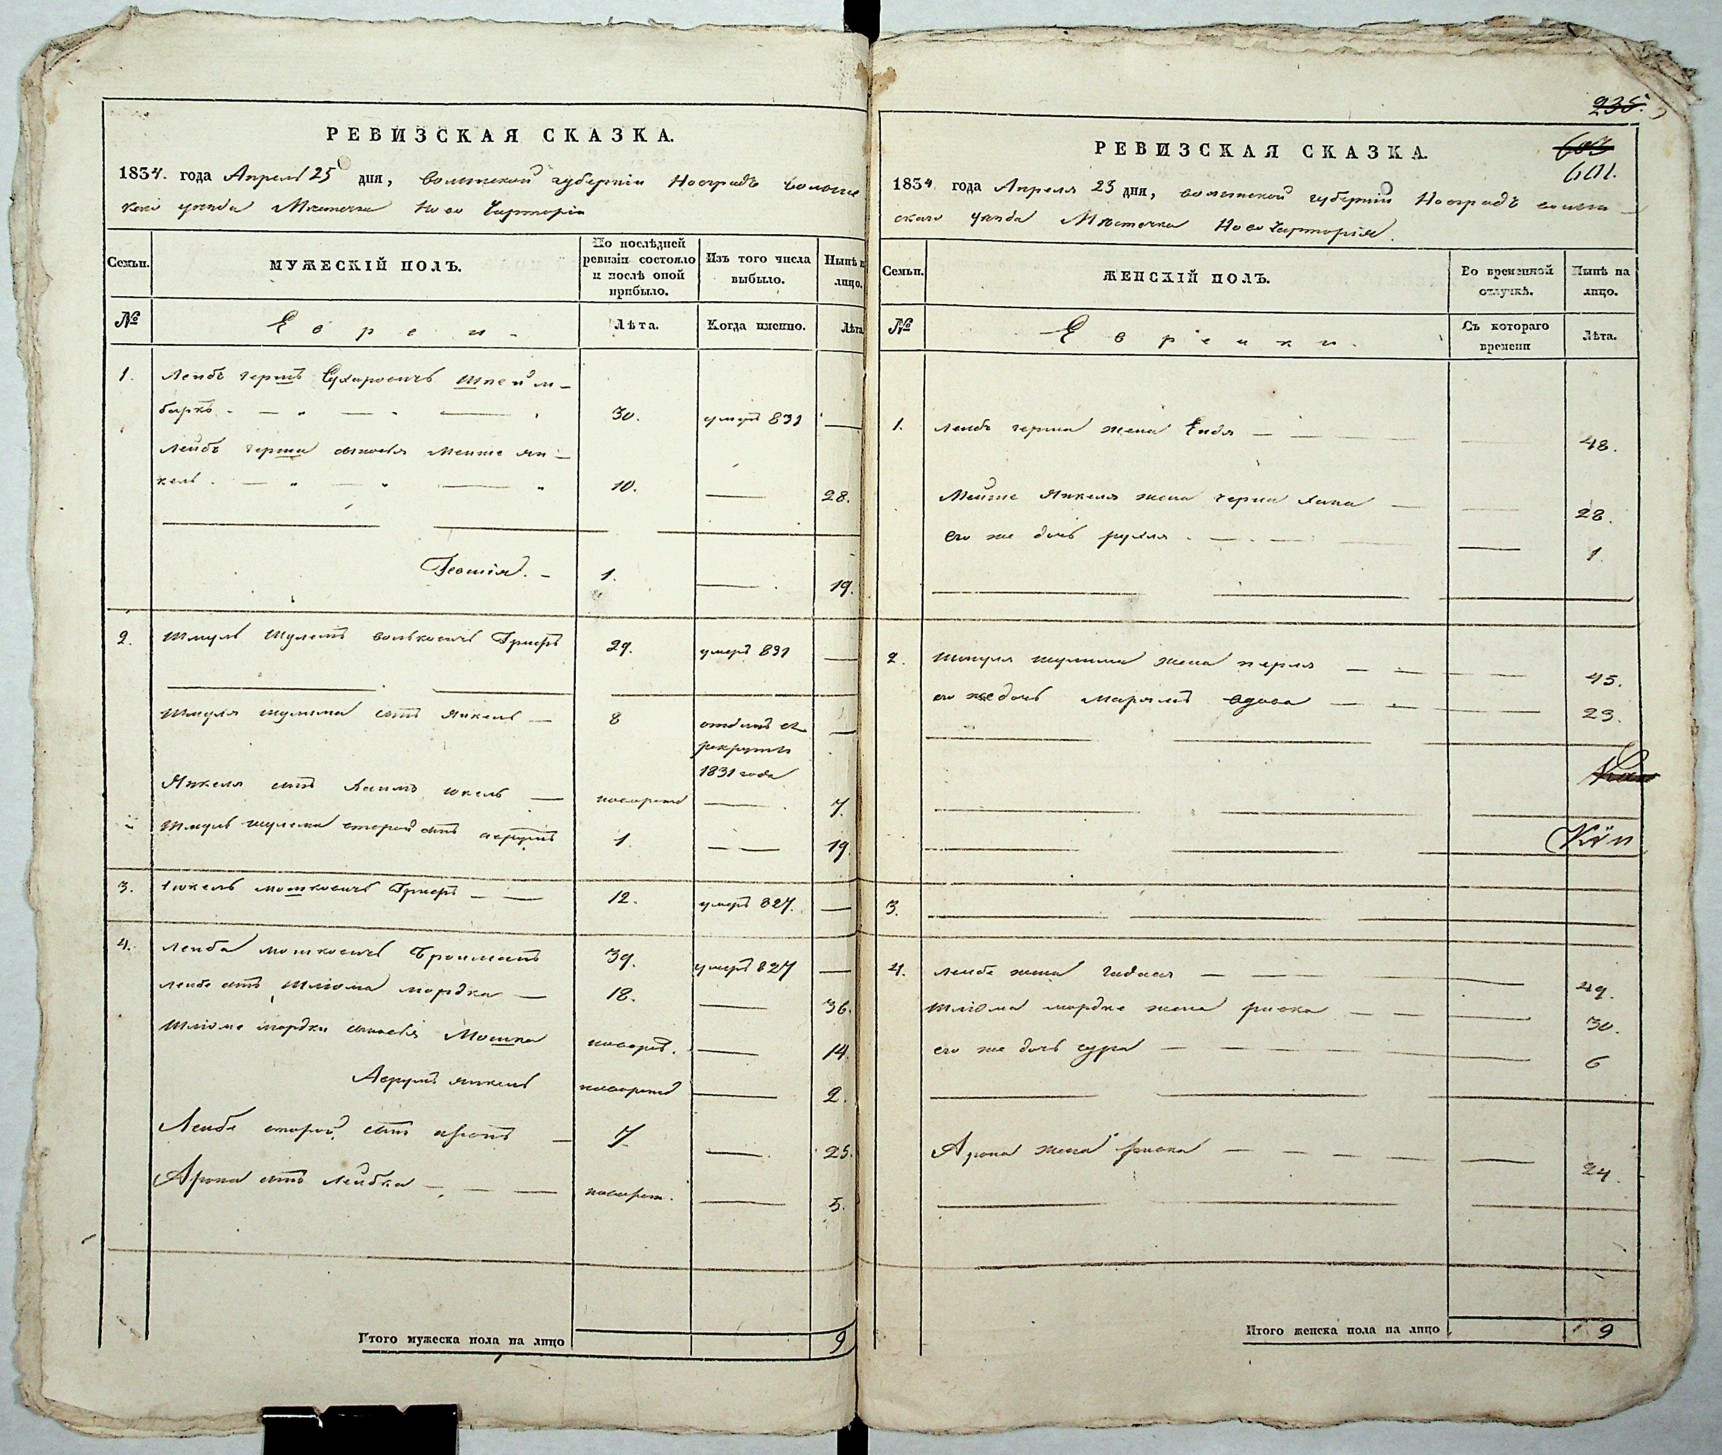 РЕВИЗСКАЯ СКАЗКА.
1834. года Апреля 25 дня, Волынской губернии Новградъ Волынс
каго уезда Местечка Ново Чартории
Семьи.
МУЖЕСКІЙ ПОЛЪ.
По послѣдней ревизіи состояло и послѣ оной прибыло.
Изъ того числа выбыло.
Нынѣ н лицо.
№
Евреи
Лѣта.
Когда именно.
Лѣта
1. Лейбъ Гершъ
баркъ 30. умеръ 831 —
Лейбъ Герша сыновья Мейше Ян-
кель 10. — 28.
1. — 19.
2. Шмуль Шулемъ Волькович 29. умеръ 831 —
Шмуля Шулима сынъ Янкель 8 отданъ въ —
рекруты
1831 года
Янкеля сынъ Хаимъ Юкель — новорожд — 7.
Шмуль Шулема второй сынъ 1. — 19.
3. Юкель Мошкович — 12. умеръ 827. —
4. Лейба Мошкович Бройманъ 39. умеръ 827 —
Лейбы сынъ Шліома Мордка — 18. — 36.
Шліоме Мордки сыновья Мошка новорож. — 14.
Янкель новорожд — 2.
Лейбы второй сынъ Аронъ — 7 — 25.
Арона сынъ Лейбка — новорож. — 5.
Итого мужеска пола на лицо 9
235.
601.
РЕВИЗСКАЯ СКАЗКА.
1834 года Апреля 25 дня, Волынской губернии Новградъ Волын
скаго уезда Местечка Ново Чартория.
Семьи.
ЖЕНСКІЙ ПОЛЪ.
Во временной отлучкѣ.
Нынѣ на лицо.
№
Еврейки.
Съ котораго времени
Лѣта.
1. Лейбъ Герша жена — 48.
Мейше Янкеля жена Хана — 28.
его же дочь рухля — 1.
2. Шмуля Шулима жена перля — 45.
его же дочь Марьямъ вдова — 23.
3.
4. Лейбы жена — 49.
Шліома Мордке жена риска — 30.
его же дочь сура — 6
Арона жена риска — 24
Итого женска пола на лицо 9